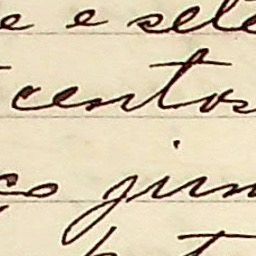 e e sete
centos
ço jun